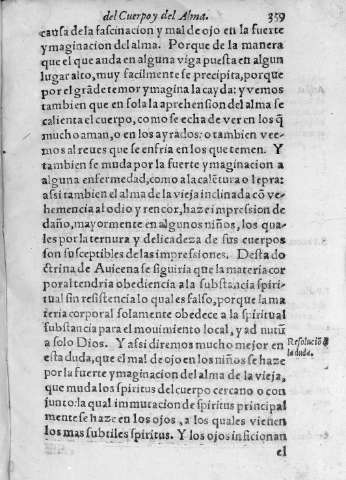 del Cuerpo y del Alma. 359
causa de la fascinacion y mal de ojo en la fuerte
ymaginacion del alma. Porque de la manera
que el que anda en alguna viga puesta en algun
lugar alto, muy facilmente se precipita, porque
por el grãde temor y magina la cayda: y vemos
tambien que en sola la aprehension del alma se
calienta el cuerpo, como se echa de ver en los q̃
mucho aman, o en los ayrados: o tambien vee-
mos al reues que se enfria en los que temen. Y
tambien se muda por la fuerte ymaginacion a
alguna enfermedad, como a la calẽtura o lepra:
assi tambien el alma de la vieja inclinada cõ ve-
hemencia al odio y rencor, haze impression de
daño, mayormente en algunos niños, los qua-
les por la ternura y delicadeza de sus cuerpos
son susceptibles de las impressiones. Desta do
ctrina de Auicena se siguiria que la materia cor
poral tendria obediencia a la substancia spiri-
tual sin resistencia lo qual es falso, porque la ma
teria corporal solamente obedece a la spiritual
substancia para el mouimiento local, y ad nutũ
a solo Dios. Y assi diremos mucho mejor en
esta duda, que el mal de ojo en los niños se haze
por la fuerte ymaginacion del alma de la vieja,
que muda los spiritus del cuerpo cercano o con
junto: la qual immutacion de spiritus principal
mente se haze en los ojos, a los quales vienen
los mas subtiles spiritus. Y los ojos inficionan
el
Resoluciõ d̃
la duda.